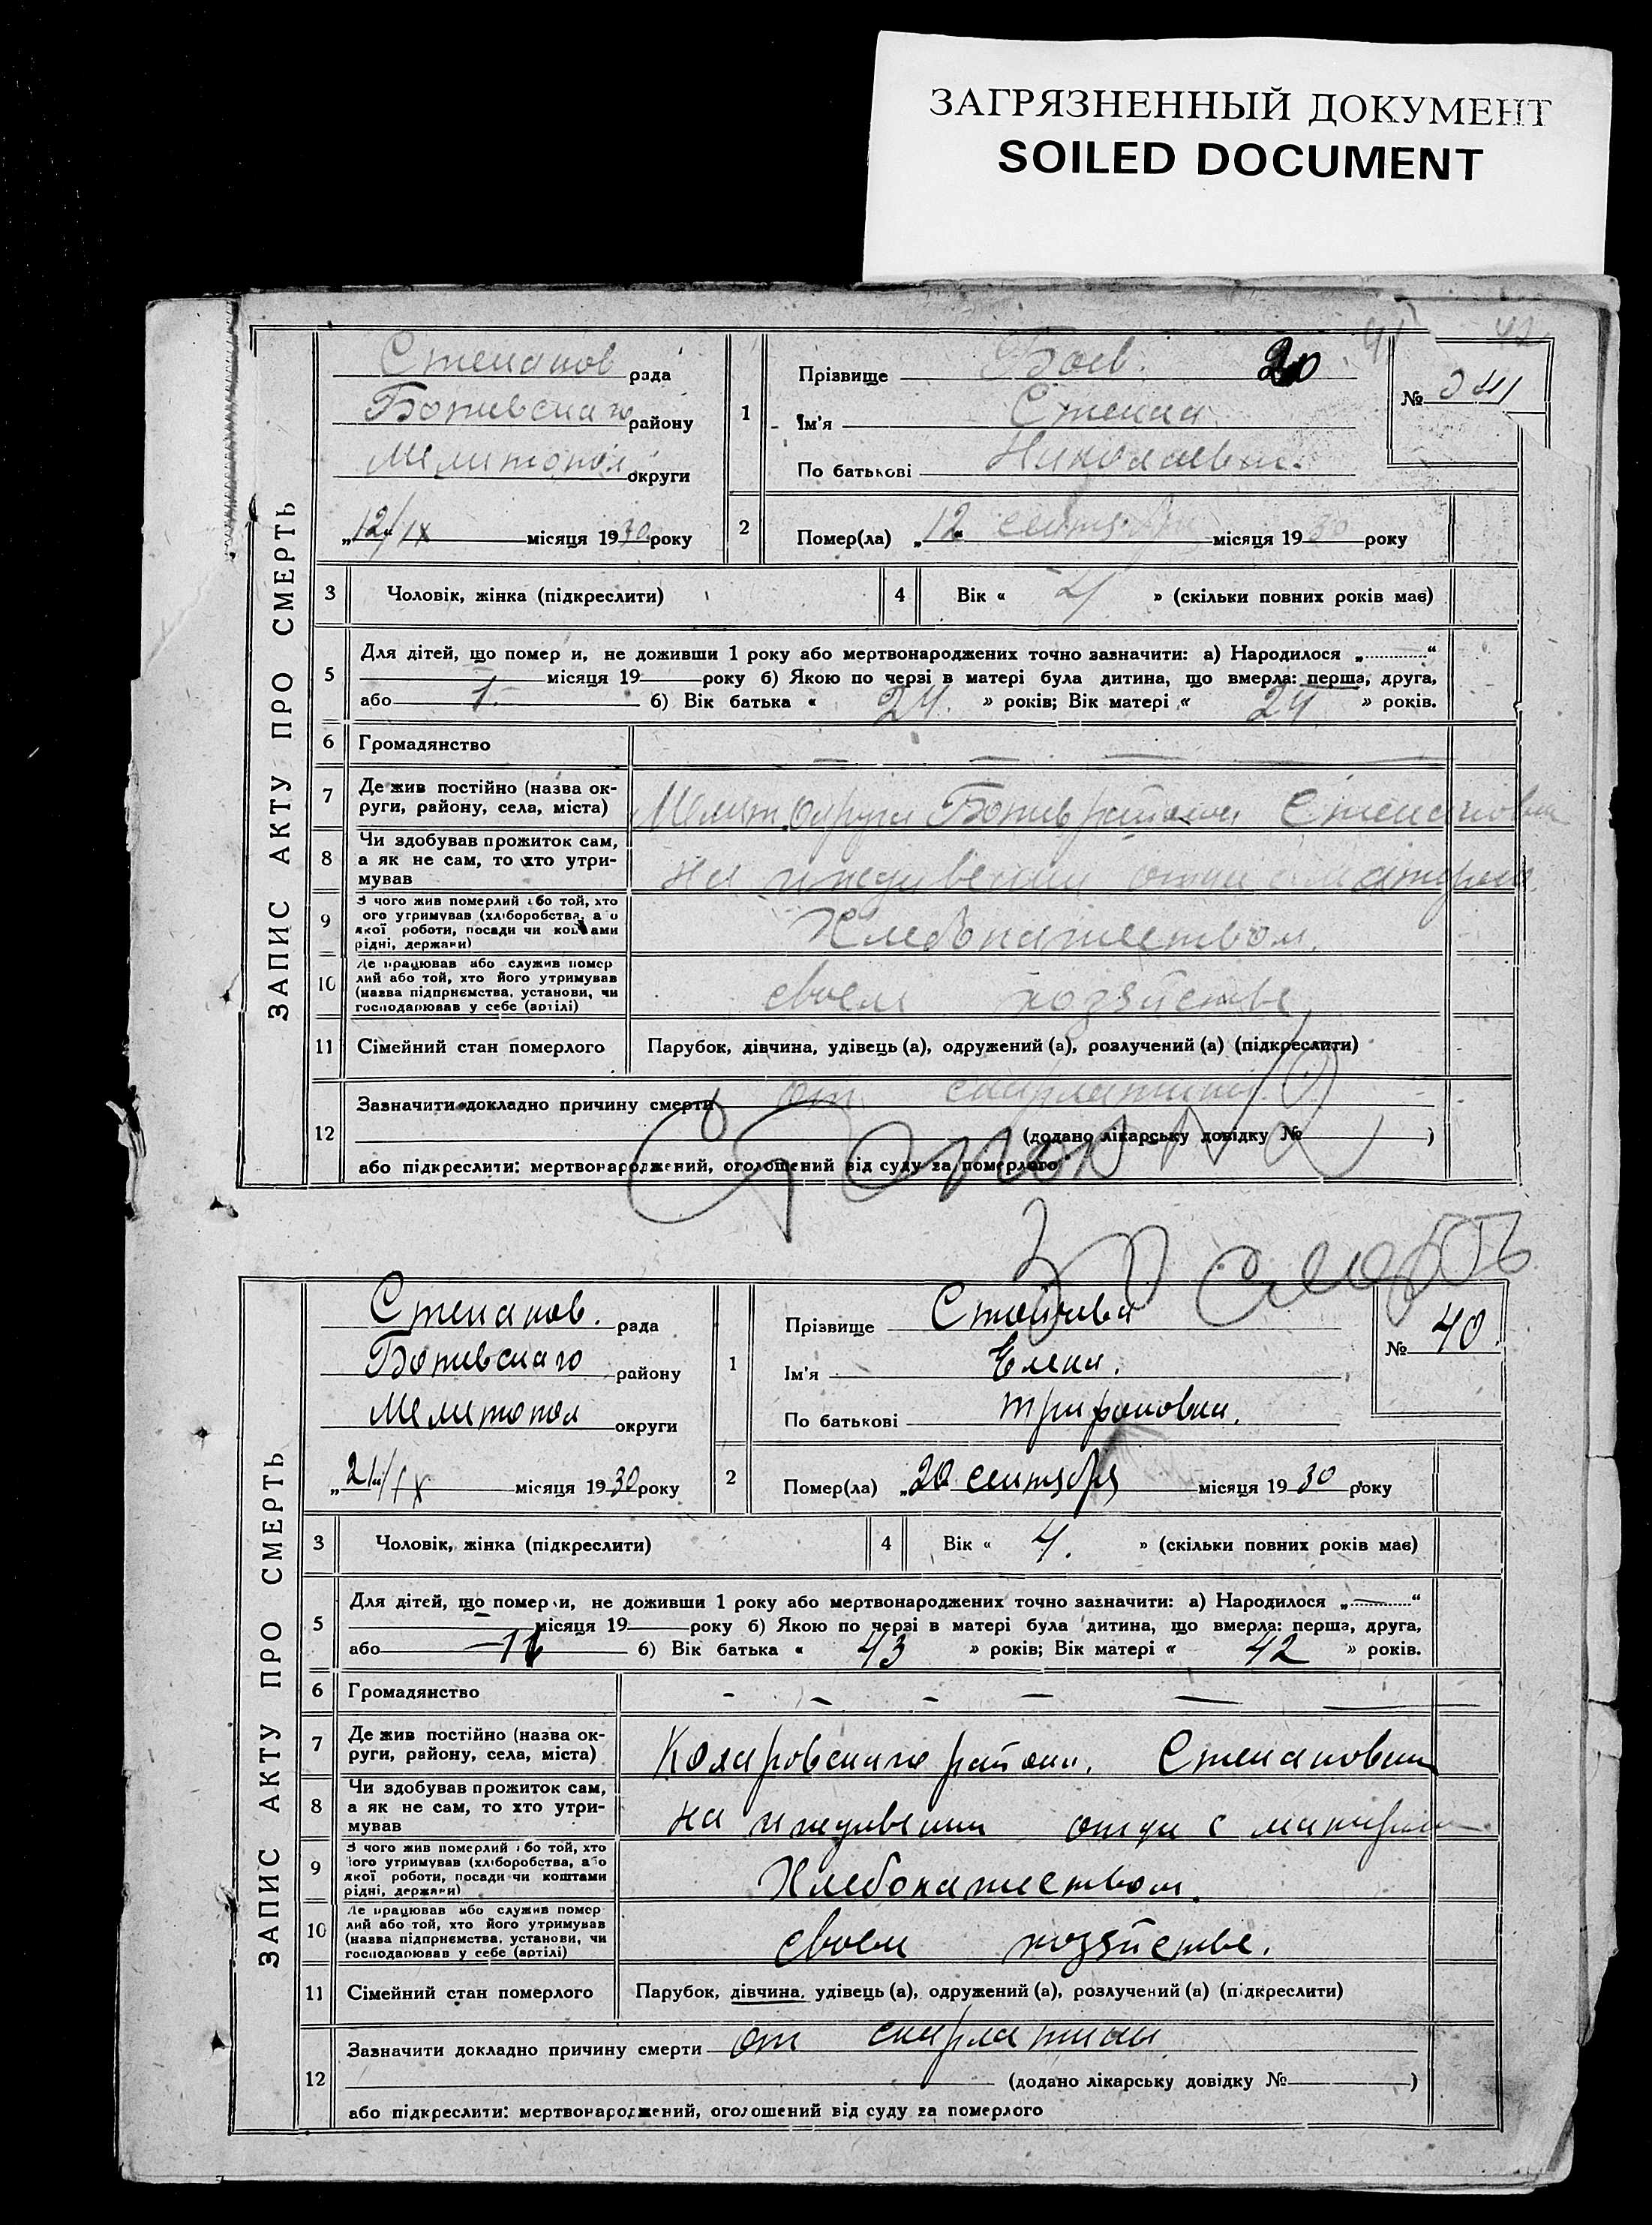 ЗАГРЯЗНЕННЫЙ ДОКУМЕНТ
SOILED DOCUMENT
42
ЗАПИС АКТУ ПРО СМЕРТЬ
Степанов рада
Ботивскаго району
Мелитопол округи
„12“/IX місяця 1930 року
1
Прізвище Боев. 20
Ім'я Степан
По батькові Николаевич.
№
2
Помер(ла) „12“ сентября місяця 1930 року
3 Чоловік, жінка (підкреслити)
4 Вік « 4 » (скільки повних років має)
5 Для дітей, що померли, не доживши 1 року або мертвонароджених точно зазначити: а) Народилося „............“
місяця 19 року б) Якою по черзі в матері була дитина, що вмерла: перша, друга,
або 1. б) Вік батька « 24. » років; Вік матері « 24 » років.
6 Громадянство — — — —
7 Де жив постійно (назва округи, району, села, міста) Мелит. округи Ботив района Степановка
8 Чи здобував прожиток сам, а як не сам, то хто утримував на иждивении отца с матерью.
9 З чого жив померлий або той, хто його утримував (хліборобства, або якої роботи, посади чи коштами рідні, держави) Хлебопашеством.
10 Де працював або служив померлий або той, хто його утримував (назва підприємства, установи, чи господарював у себе (артілі) своем хозяйстве
11 Сімейний стан померлого Парубок, дівчина, удівець (а), одружений (а), розлучений (а) (підкреслити)
12 Зазначити докладно причину смерти от скарлатины
(додано лікарську довідку № )
або підкреслити: мертвонароджений, оголошений від суду за померлого
смерть
ЗАПИС АКТУ ПРО СМЕРТЬ
Степанов. рада
Ботивскаго району
Мелитопол округи
„21“/IX місяця 1930 року
1
Прізвище Стойчева
Ім'я Елена.
По батькові Трифоновна.
№ 40.
2
Помер(ла) „20“ сентября місяця 1930 року
3 Чоловік, жінка (підкреслити)
4 Вік « 4. » (скільки повних років має)
5 Для дітей, що померли, не доживши 1 року або мертвонароджених точно зазначити: а) Народилося „............“
місяця 19 року б) Якою по черзі в матері була дитина, що вмерла: перша, друга,
або б) Вік батька « 43 » років; Вік матері « 42 » років.
6 Громадянство - - - - — —
7 Де жив постійно (назва округи, району, села, міста) Коларовскаго района. Степановка
8 Чи здобував прожиток сам, а як не сам, то хто утримував на иждивении отца с матерью
9 З чого жив померлий або той, хто його утримував (хліборобства, або якої роботи, посади чи коштами рідні, держави) Хлебопашеством.
10 Де працював або служив померлий або той, хто його утримував (назва підприємства, установи, чи господарював у себе (артілі) своем хозяйстве.
11 Сімейний стан померлого Парубок, дівчина, удівець (а), одружений (а), розлучений (а) (підкреслити)
12 Зазначити докладно причину смерти от скарлатины
(додано лікарську довідку № )
або підкреслити: мертвонароджений, оголошений від суду за померлого